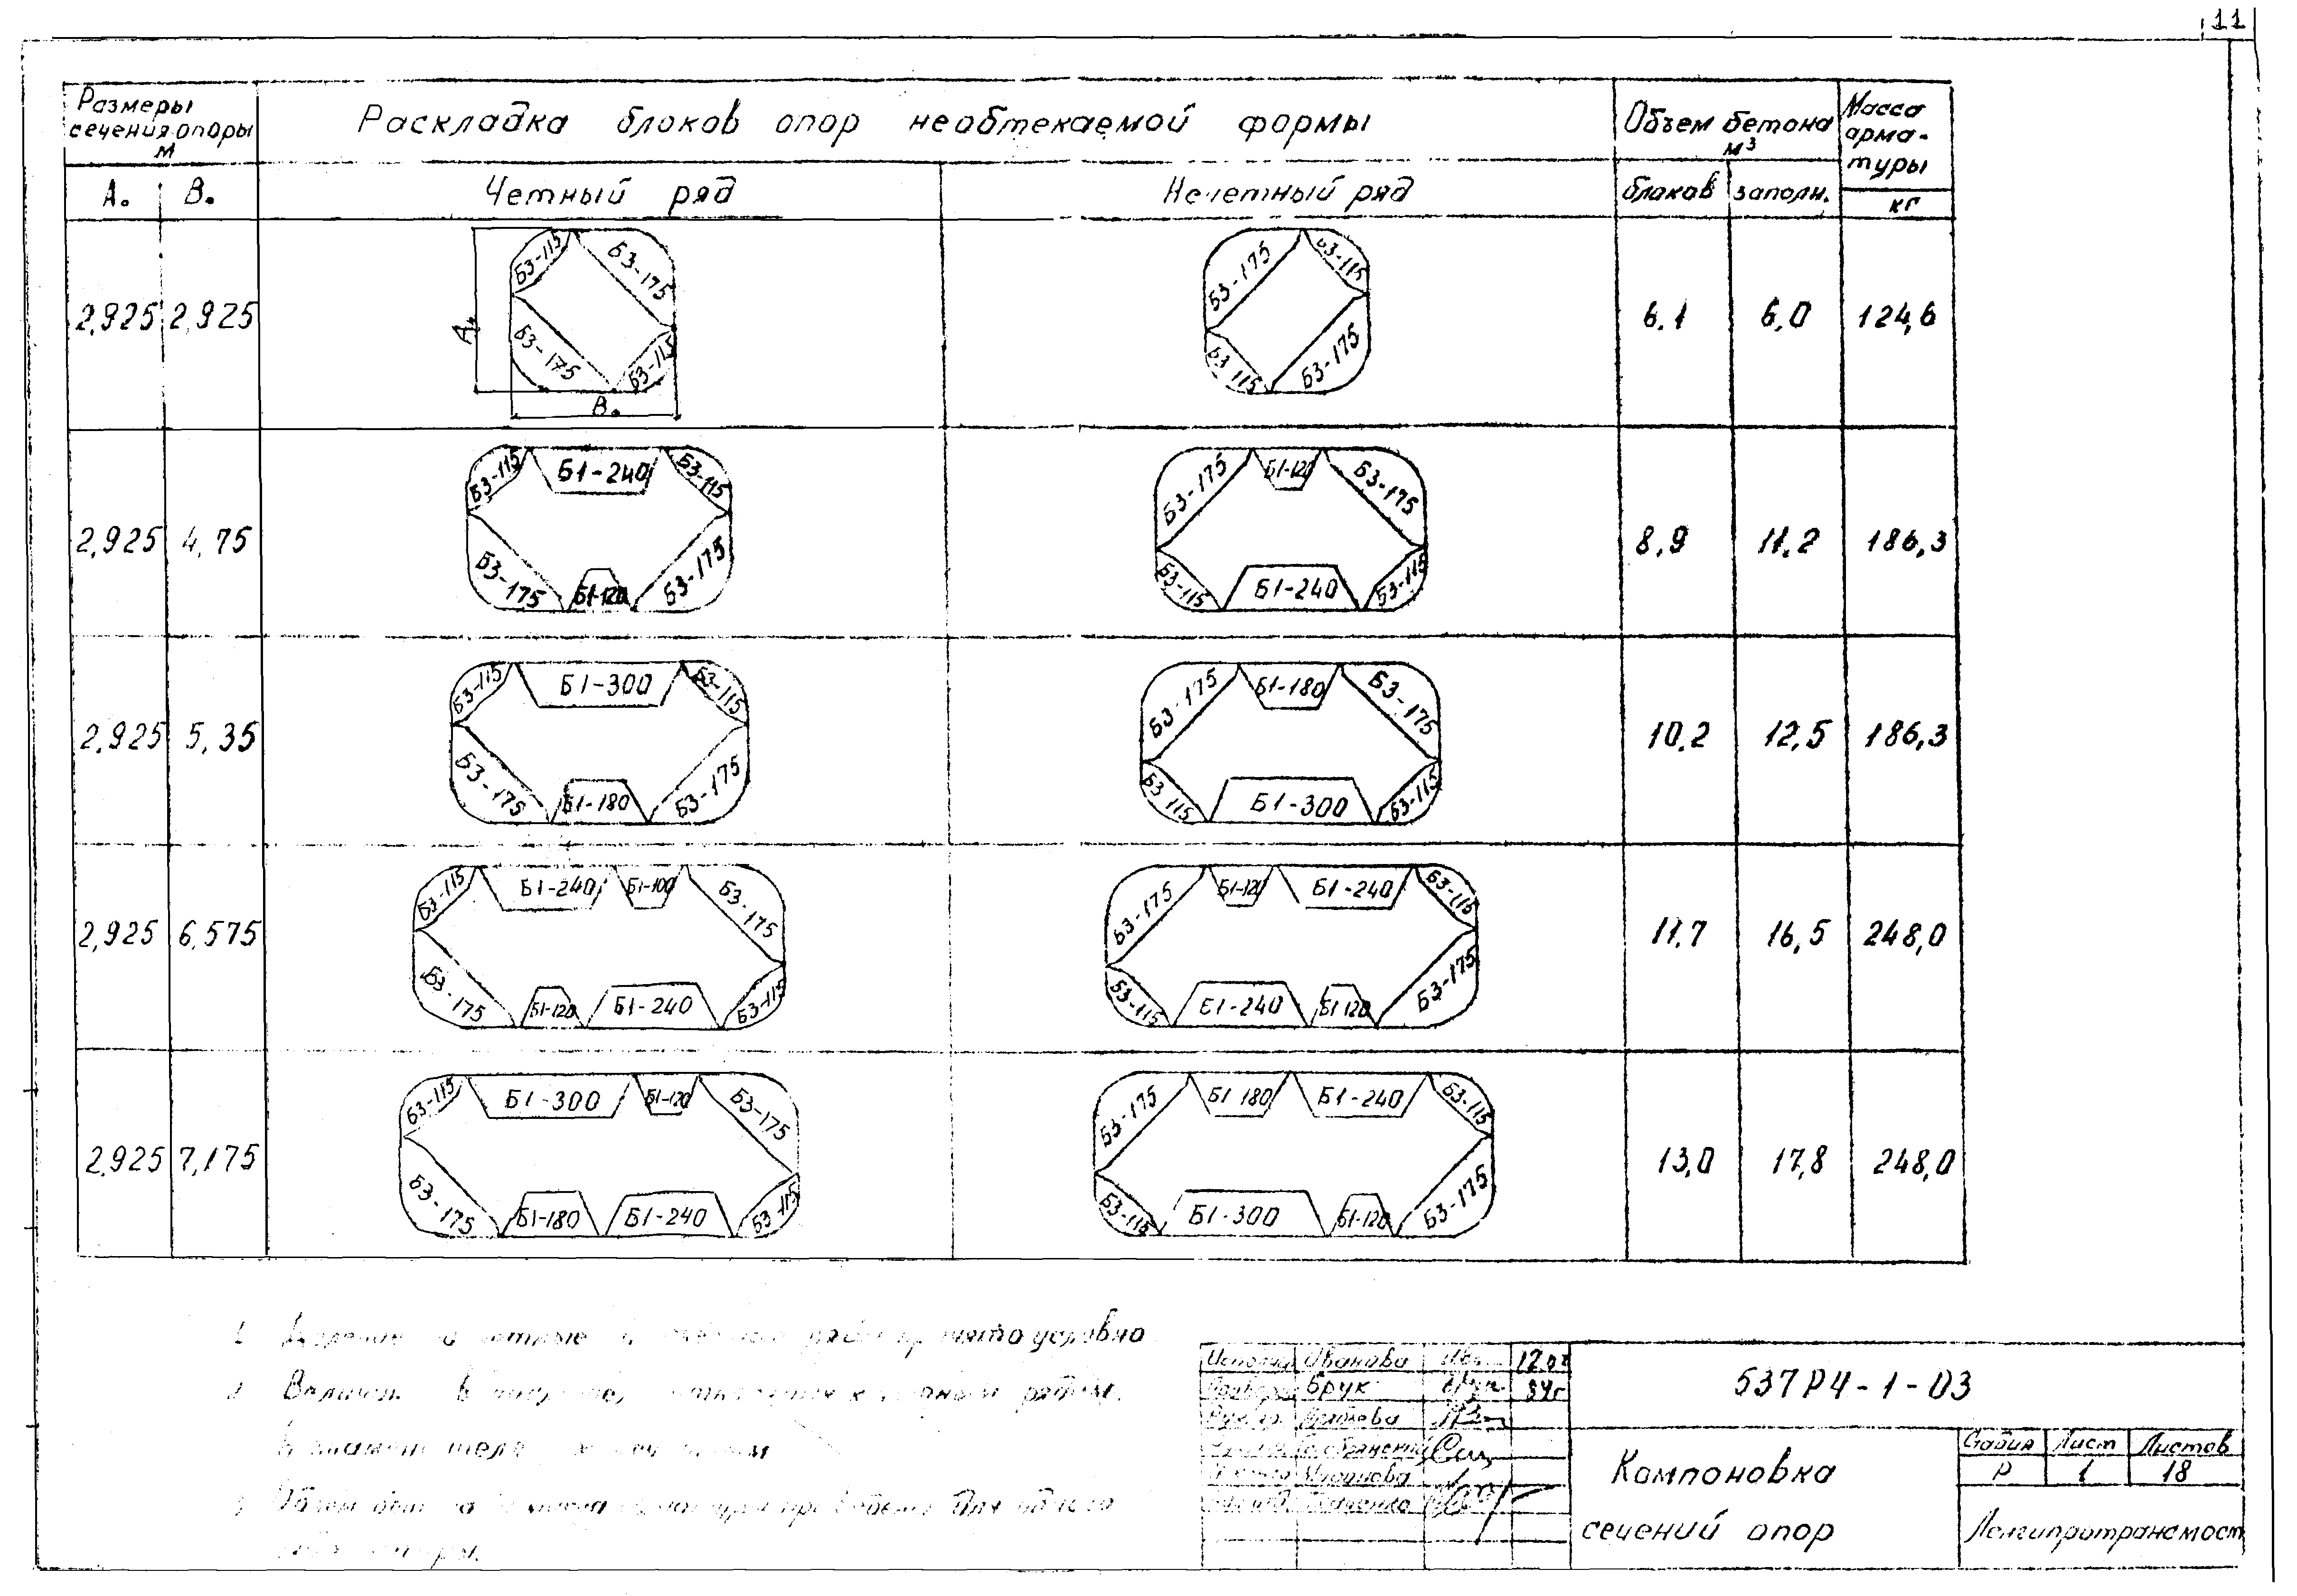 11
Размеры
сечения опоры
м
Раскладка блоков опор необтекаемой формы
Объем бетона
м³
Масса
арма-
туры
А. В. Четный ряд Нечетный ряд блоков заполн. кг
Б3-115 Б3-175 Б3-175 Б3-115
2,925 2,925 А. 6.1 6,0 124,6
Б3-175 Б3-115 Б3 115 Б3-175
В.
Б3-115 Б1-240 Б3-115 Б3-175 Б1-120 Б3-175
2,925 4,75 8,9 11.2 186,3
Б3-175 Б1-120 Б3-175 Б3-115 Б1-240 Б3-115
Б3-115 Б1-300 Б3-115 Б3-175 Б1-180 Б3-175
2,925 5,35 10.2 12,5 186,3
Б3-175 Б1-180 Б3-175 Б3 115 Б1-300 Б3-115
Б3-115 Б1-240 Б1-100 Б3-175 Б3-175 Б1-120 Б1-240 Б3-115
2,925 6,575 11.7 16,5 248,0
Б3-175 Б1-120 Б1-240 Б3-115 Б3-115 Б1-240 Б1 120 Б3-175
Б3-115 Б1-300 Б1-120 Б3-175 Б3-175 Б1 180 Б1-240 Б3-115
2,925 7,175 13,0 17,8 248,0
Б3-175 Б1-180 Б1-240 Б3-115 Б3-115 Б1-300 Б1-120 Б3-175
1 принято условно
2 рядам,
3 Объем для
Иванова
Брук 84г
537РЧ-1-03
Компоновка
сечений опор
Стадия Лист Листов
Р 1 18
Ленгипротрансмост